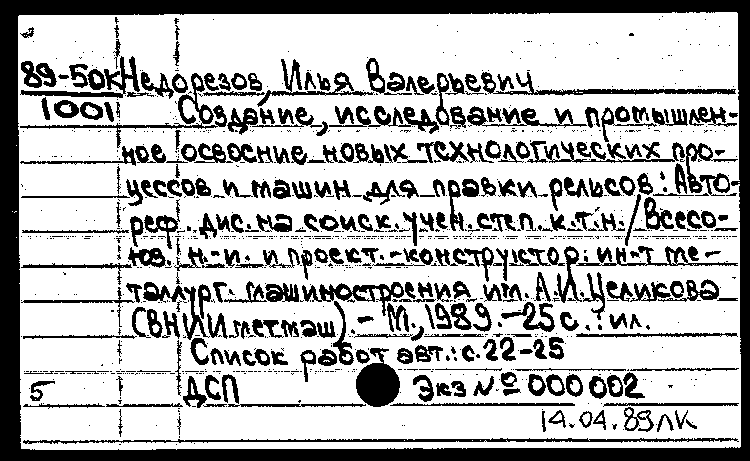 89-50К Недорезов, Илья Валерьевич
1001 Создание, исследование и промышлен-
ное освоение новых технологических про-
цессов и машин для правки рельсов: Авто-
реф. дис. на соиск. учен. степ. к.т.н. / Всесо-
юз. н.-и. и проект.-конструктор. ин-т ме-
таллург. машиностроения им. А.И. Целикова
(ВНИИметмаш). – М., 1989. – 25 с. : ил.
Список работ авт.: с. 22-25
5 ДСП Экз № 000 002
14.04.89 ЛК